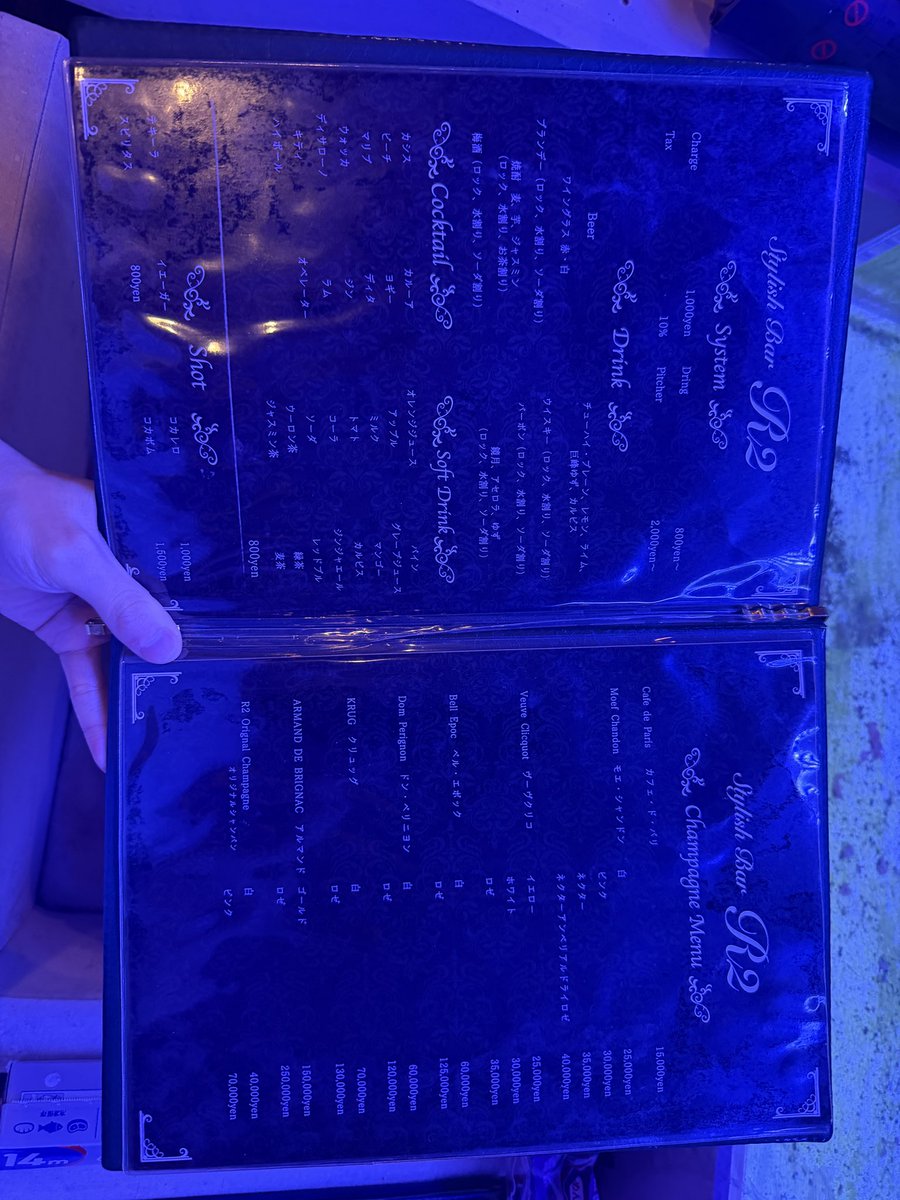 Stylish Bar R2
System
Charge 1,000yen Dring 800yen~
Tax 10% Pitcher 2,000yen~
Drink
Beer
ワイングラス 赤・白
ブランデー (ロック、水割り、ソーダ割り)
焼酎 麦、芋、ジャスミン
(ロック、水割り、お茶割り)
梅酒 (ロック、水割り、ソーダ割り)
チューハイ・プレーン、レモン、ライム、
巨峰ゆず、カルピス
ウイスキー (ロック、水割り、ソーダ割り)
バーボン (ロック、水割り、ソーダ割り)
鏡月 アセロラ、ゆず
(ロック、水割り、ソーダ割り)
Cocktail
カシス カルーア
ピーチ ヨギー
マリブ ディタ
ウォッカ ジン
ディサローノ ラム
キティ オペレーター
ハイボール
Soft Drink
オレンジジュース パイン
アップル グレープジュース
ミルク マンゴー
トマト カルピス
コーラ ジンジャエール
ソーダ レッドブル
ウーロン茶 緑茶
ジャスミン茶 麦茶
800yen
Shot
テキーラ イエーガー コカレロ 1,000yen
スピリタス 800yen コカボム 1,500yen
Stylish Bar R2
Champagne Menu
Cafe de Paris カフェ・ド・パリ 15,000yen
Moef Chandon モエ・シャンドン 白 25,000yen
ピンク 30,000yen
ネクター 35,000yen
ネクターアンペリアルドライロゼ 40,000yen
Veuve Clicquot ヴーヴクリコ イエロー 25,000yen
ホワイト 30,000yen
ロゼ 35,000yen
Bell Epoc ベル・エポック 白 60,000yen
ロゼ 125,000yen
Dom Perignon ドン・ペリニヨン 白 60,000yen
ロゼ 120,000yen
KRUG クリュッグ 白 70,000yen
ロゼ 130,000yen
ARMAND DE BRIGNAC アルマンド ゴールド 150,000yen
ロゼ 250,000yen
R2 Orignal Champagne 白 40,000yen
オリジナルシャンパン ピンク 70,000yen
14m